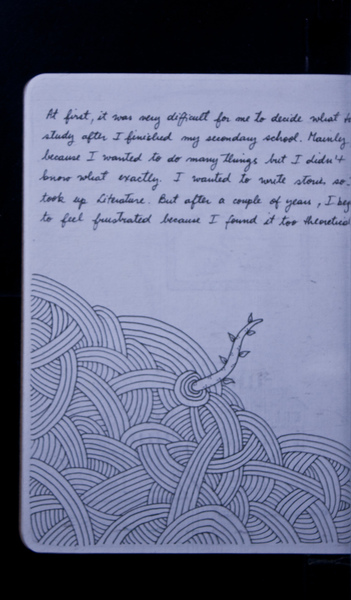 At first, it was very difficult for me to decide what to
study after I finished my secondary school. Mainly
because I wanted to do many things but I didn't
know what exactly. I wanted to write stories so I
took up Literature. But after a couple of years, I beg
to feel frustrated because I found it too theoretical